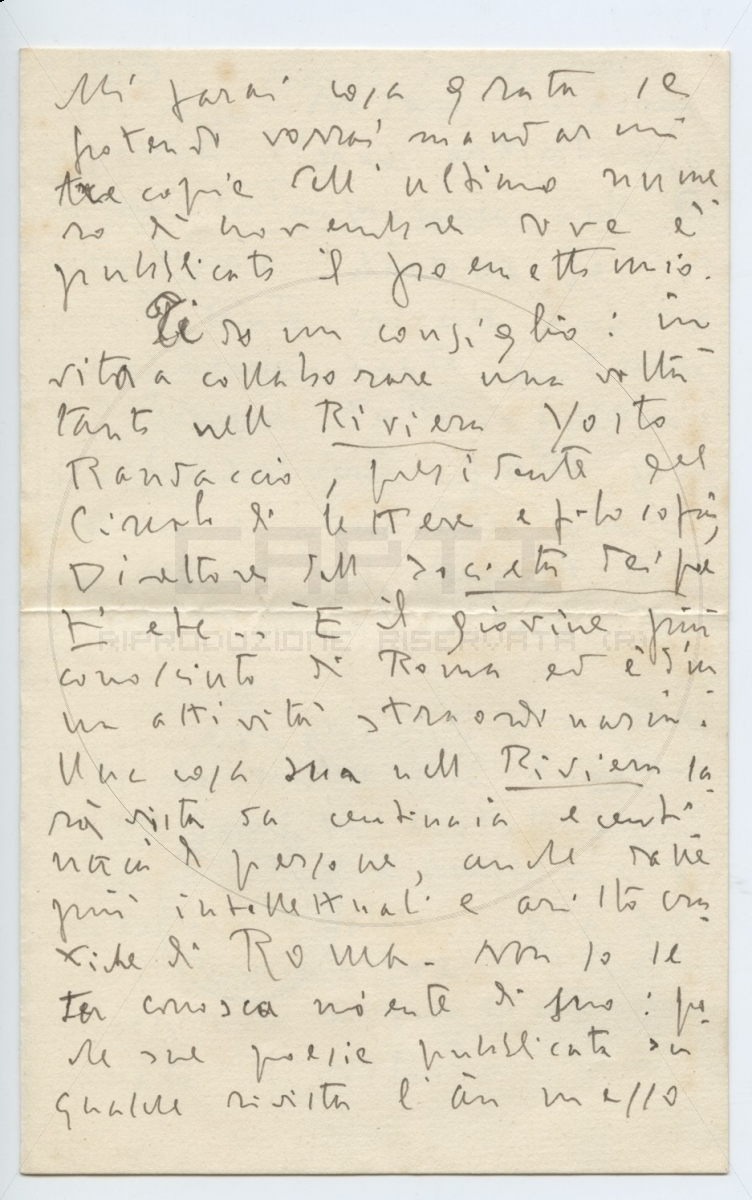 Mi farai cosa grata se
potendo vorrai mandarmi
tre copie dell'ultimo nume
ro di novembre ove è
pubblicato il poemetto mio.
Ti do un consiglio: in
vita a collaborare una volta
tanto nella Riviera
Randaccio, presidente del
Circolo di lettere e filosofia,
Direttore della Società dei poe
ti etc... È il giovine più
conosciuto di Roma ed è d'u
na attività straordinaria.
Una cosa sua nella Riviera sa
rà vista da centinaia e centi
naia di persone, anche dalle
più intellettuali e aristocra
tiche di Roma. Non so se
tu conosca niente di suo: po
che sue poesie pubblicate su
qualche rivista l'àn messo
CAPTI
RIPRODUZIONE RISERVATA